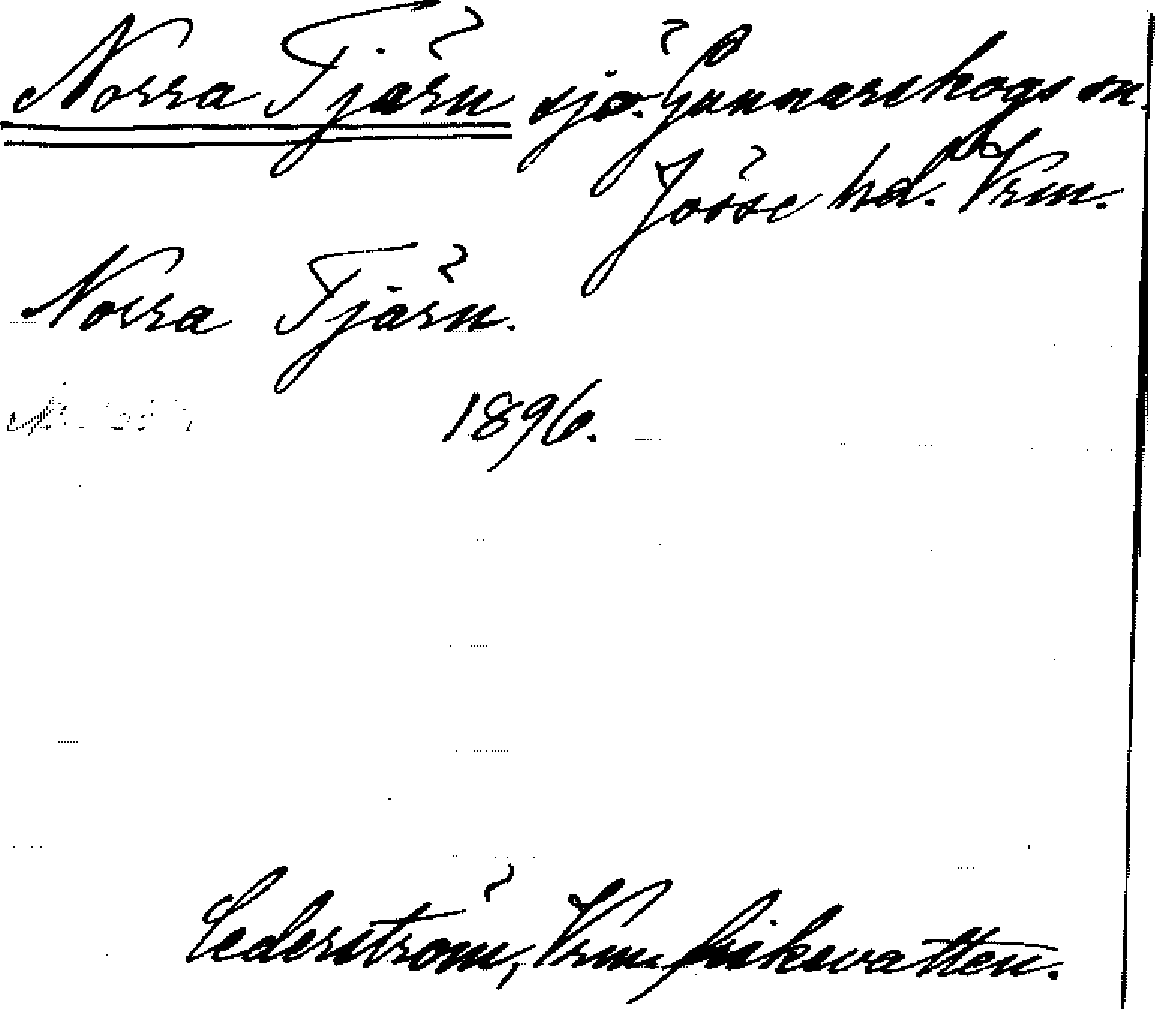 Norra Tjärn sjö. Gunnarskogs sn.
Jösse hd. Vrm.
Norra Tjärn.
1896.
Cederström, Vrm. fiskevatten.